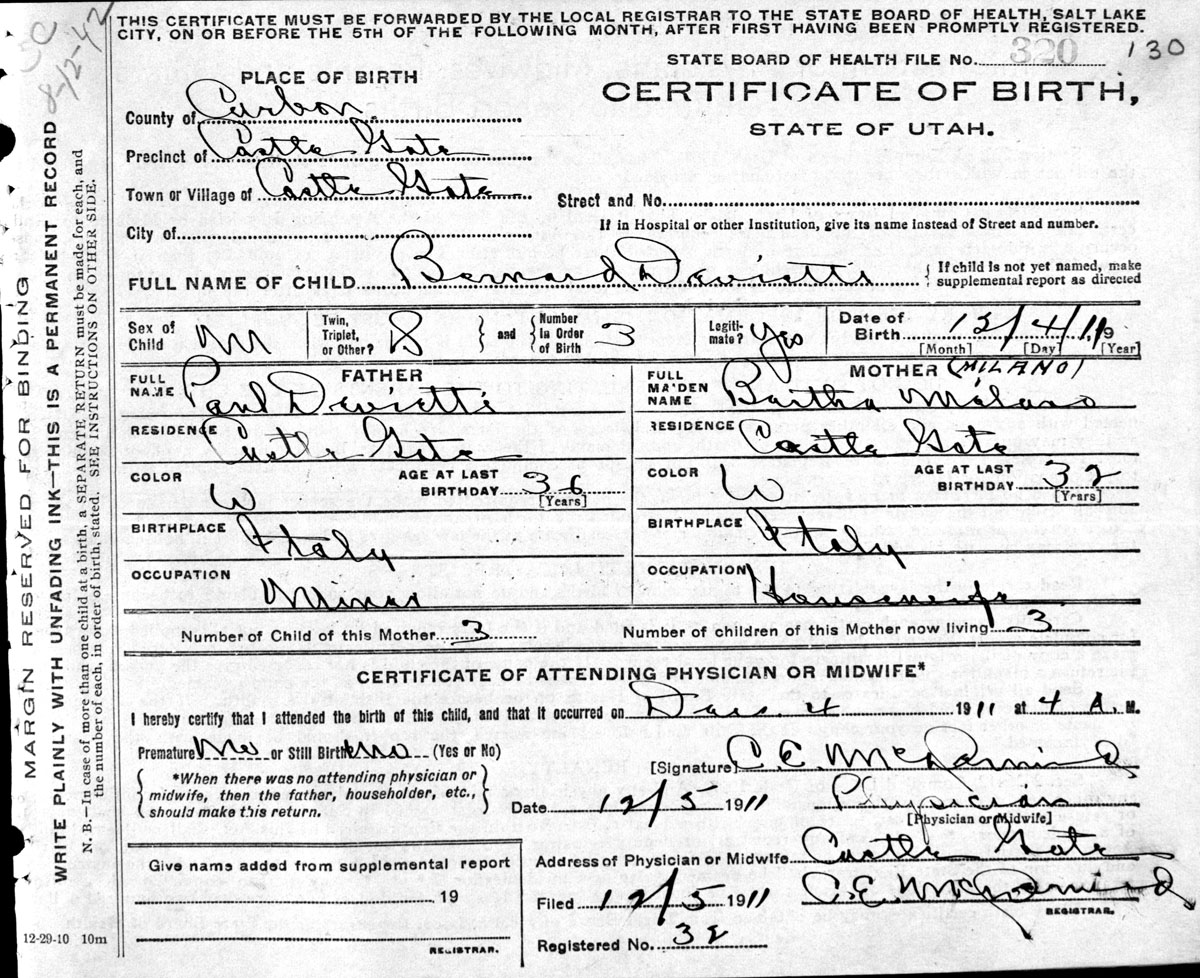 THIS CERTIFICATE MUST BE FORWARDED BY THE LOCAL REGISTRAR TO THE STATE BOARD OF HEALTH, SALT LAKE
CITY, ON OR BEFORE THE 5TH OF THE FOLLOWING MONTH, AFTER FIRST HAVING BEEN PROMPTLY REGISTERED.
8-12-42
STATE BOARD OF HEALTH FILE No. 320 130
PLACE OF BIRTH
CERTIFICATE OF BIRTH,
STATE OF UTAH.
County of Carbon
Precinct of Castle Gate
Town or Village of Castle Gate
Street and No.
City of
If in Hospital or other Institution, give its name instead of Street and number.
FULL NAME OF CHILD Bernard Davietti { If child is not yet named, make supplemental report as directed
Sex of Child M Twin, Triplet, or Other? and Number in Order of Birth 3 Legitimate? Yes Date of Birth 12/4/1911
[Month] [Day] [Year]
FATHER
FULL NAME Paul Davietti
RESIDENCE Castle Gate
COLOR W AGE AT LAST BIRTHDAY 36 [Years]
BIRTHPLACE Italy
OCCUPATION Miner
MOTHER (MILANO)
FULL MAIDEN NAME Bertha Milano
RESIDENCE Castle Gate
COLOR W AGE AT LAST BIRTHDAY 32 [Years]
BIRTHPLACE Italy
OCCUPATION Housewife
Number of Child of this Mother 3 Number of children of this Mother now living 3
CERTIFICATE OF ATTENDING PHYSICIAN OR MIDWIFE*
I hereby certify that I attended the birth of this child, and that it occurred on Dec. 4 1911 at 4 A. M.
Premature No or Still Birth no (Yes or No)
*When there was no attending physician or
midwife, then the father, householder, etc.,
should make this return.
[Signature] C. E. McDermid
Date 12/5 1911 Physician
[Physician or Midwife]
Give name added from supplemental report
19
REGISTRAR.
Address of Physician or Midwife Castle Gate
Filed 12/5 1911 C. E. McDermid
REGISTRAR.
Registered No. 32
12-29-10 10m
MARGIN RESERVED FOR BINDING
WRITE PLAINLY WITH UNFADING INK—THIS IS A PERMANENT RECORD
N. B.—In case of more than one child at a birth, a SEPARATE RETURN must be made for each, and
the number of each, in order of birth, stated. SEE INSTRUCTIONS ON OTHER SIDE.